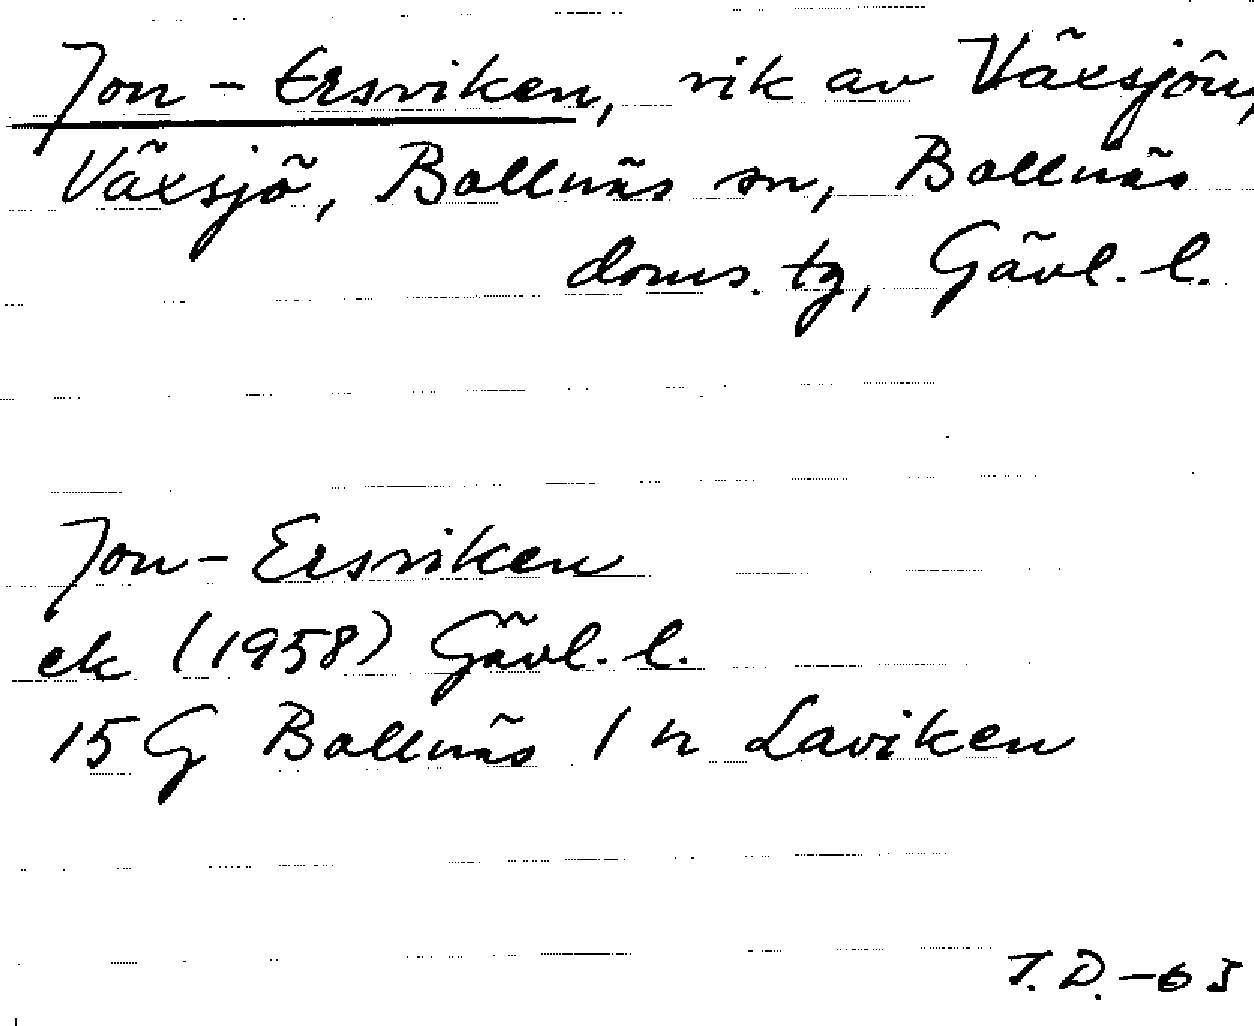 Jon-Ersviken, vik av Växsjön,
Växsjö, Bollnäs sn, Bollnäs
doms. tg, Gävl. l.
Jon-Ersviken
ek (1958) Gävl. l.
15 G Bollnäs 1 n Laviken
T. D. -65